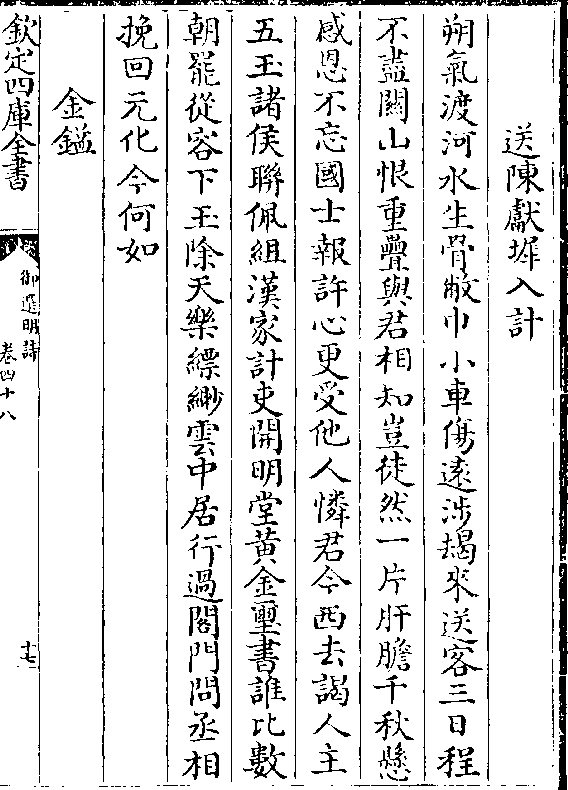 送陳獻墀入計
朔氣渡河水生骨敝巾小車傷逺涉朅來送客三日程
不盡關山恨重疊與君相知豈徒然一片肝膽千秋懸
感恩不忘國士報許心更受他人憐君今西去謁人主
五玉諸侯聯佩組漢家計吏開明堂黄金璽書誰比數
朝罷從容下玉除天樂縹緲雲中居行過閣門問丞相
挽回元化今何如
金鎰
欽定四庫全書
御選明詩
卷四十八
十七